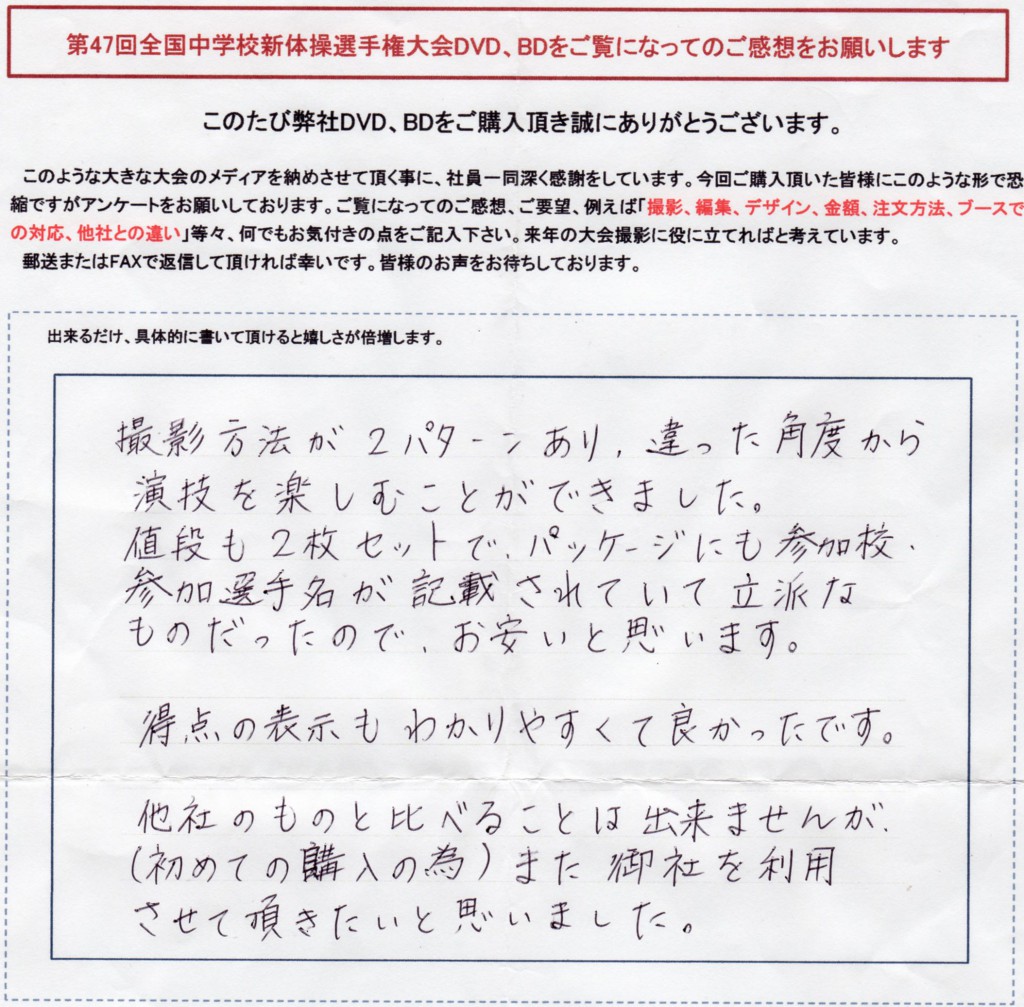 第47回全国中学校新体操選手権大会DVD、BDをご覧になってのご感想をお願いします
このたび弊社DVD、BDをご購入頂き誠にありがとうございます。
このような大きな大会のメディアを納めさせて頂く事に、社員一同深く感謝をしています。今回ご購入頂いた皆様にこのような形で恐
縮ですがアンケートをお願いしております。ご覧になってのご感想、ご要望、例えば「撮影、編集、デザイン、金額、注文方法、ブースで
の対応、他社との違い」等々、何でもお気付きの点をご記入下さい。来年の大会撮影に役に立てればと考えています。
郵送またはFAXで返信して頂ければ幸いです。皆様のお声をお待ちしております。
出来るだけ、具体的に書いて頂けると嬉しさが倍増します。
撮影方法が2パターンあり、違った角度から
演技を楽しむことができました。
値段も2枚セットで、パッケージにも参加校、
参加選手名が記載されていて立派な
ものだったので、お安いと思います。
得点の表示もわかりやすくて良かったです。
他社のものと比べることは出来ませんが、
(初めての購入の為)また御社を利用
させて頂きたいと思いました。